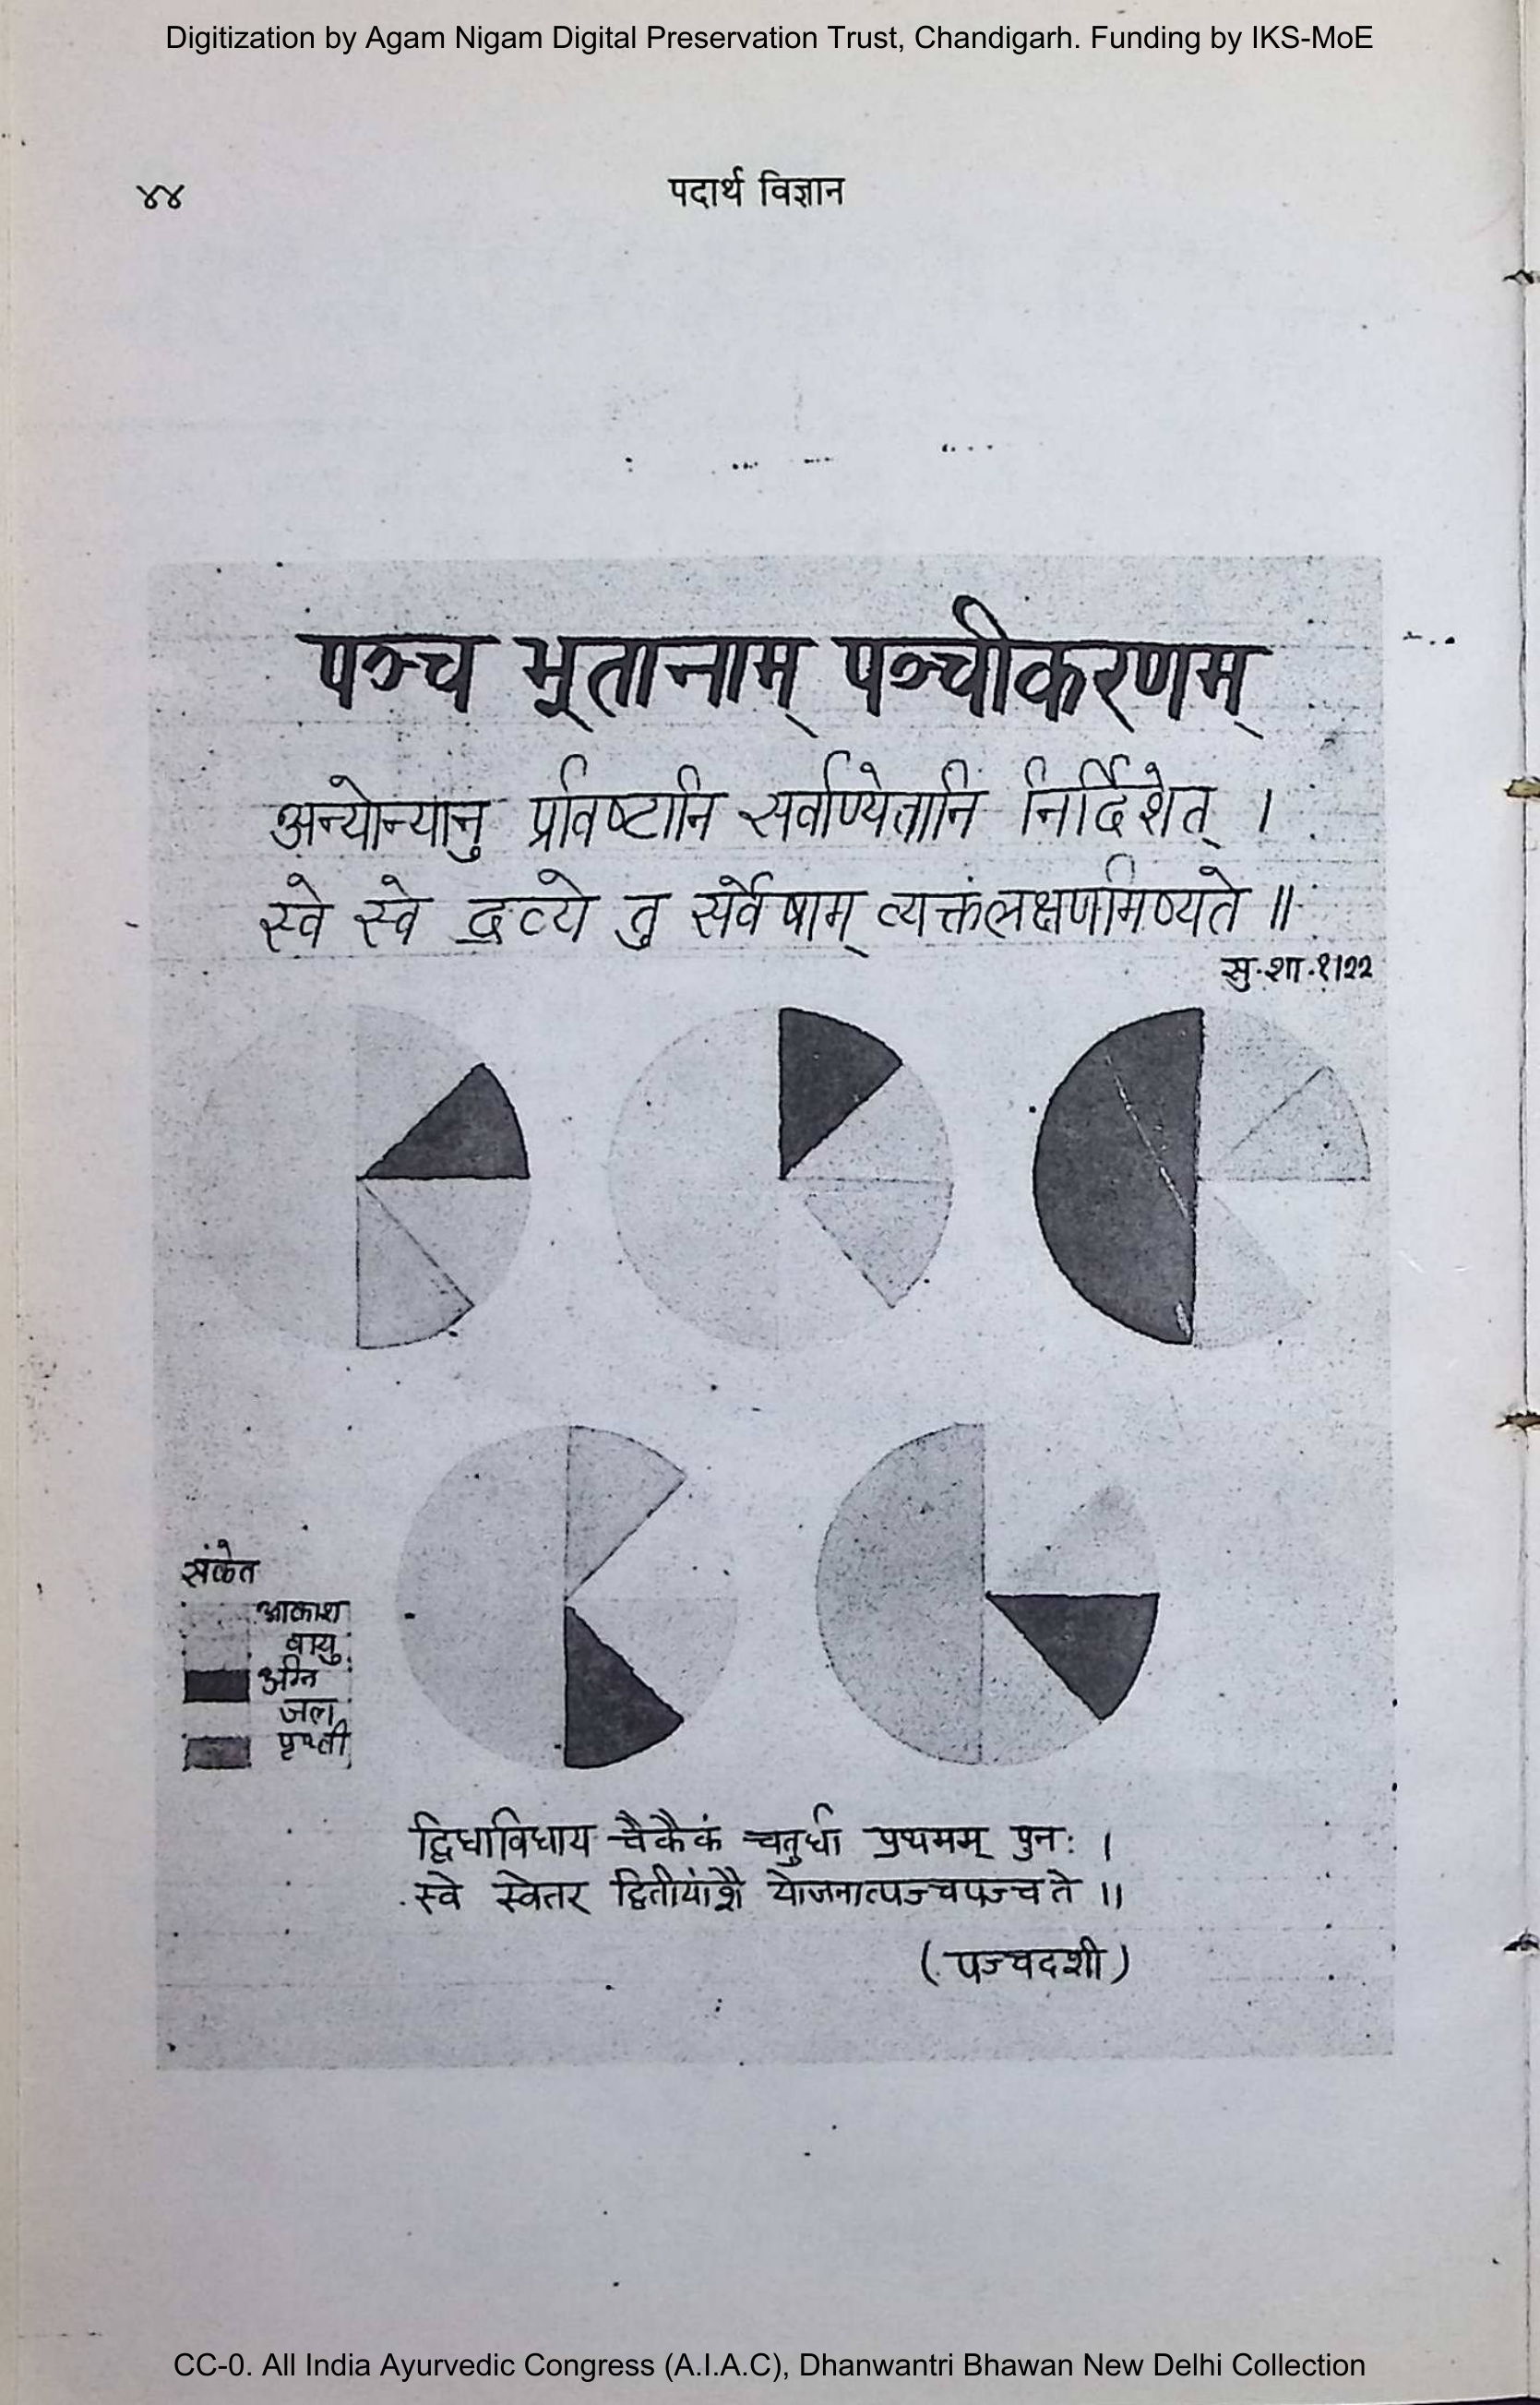 Digitization by Agam Nigam Digital Preservation Trust, Chandigarh. Funding by IKS-MoE
४४
पदार्थ विज्ञान
पञ्च भूतानाम् पञ्चीकरणम्
अन्योन्यानु प्रविष्टानि सर्वाण्येतानि निर्दिशेत् ।
स्वे स्वे द्रव्ये तु सर्वेषाम् व्यक्तंलक्षणमिष्यते ॥
सु·शा·१।२२
संकेत
आकाश
वायु
अग्नि
जल
पृथ्वी
द्विधाविधाय चैकैकं चतुर्धा प्रथमम् पुनः ।
स्वे स्वेतर द्वितीयांशै योजनात्पञ्चपञ्चते ॥
(पञ्चदशी)
CC-0. All India Ayurvedic Congress (A.I.A.C), Dhanwantri Bhawan New Delhi Collection